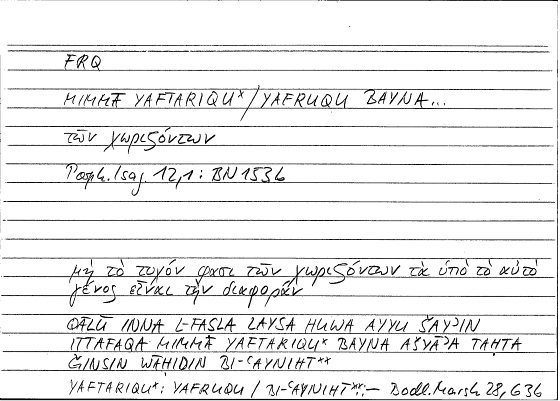 FRQ
MIMMĀ YAFTARIQU* / YAFRUQU BAYNA...
τῶν χωριζόντων
Porph. Isag. 12,1 : BN 1536
μὴ τὸ τυχόν φασι τῶν χωριζόντων τὰ ὑπὸ τὸ αὐτὸ
γένος εἶναι τὴν διαφοράν
QĀLŪ INNA L-FAṢLA LAYSA HUWA AYYU ŠAYʾIN
ITTAFAQA MIMMĀ YAFTARIQU* BAYNA AŠYĀʾA TAḤTA
ǦINSIN WĀḤIDIN BI-ʿAYNIHI**
YAFTARIQU*: YAFRUQU / BI-ʿAYNIHI**: — Bodl. Marsh 28, 636